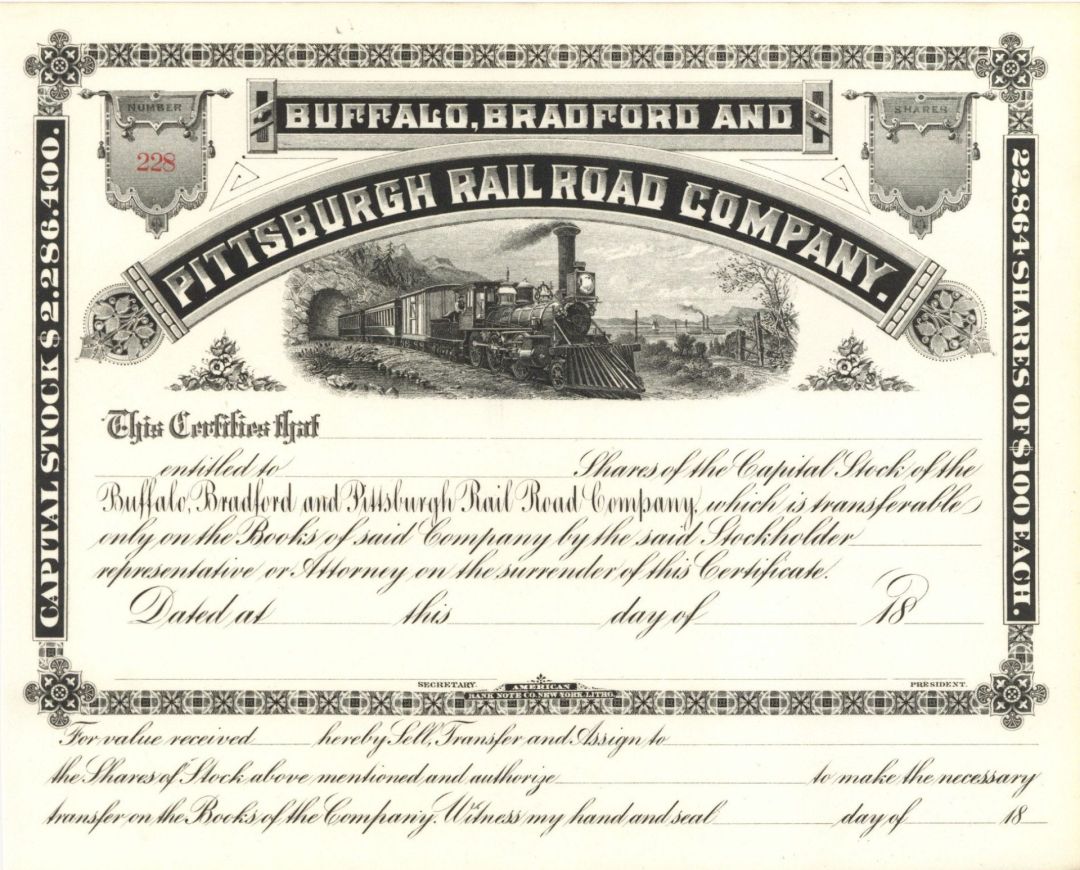 NUMBER
228
SHARES
BUFFALO, BRADFORD AND
PITTSBURGH RAIL ROAD COMPANY.
CAPITAL STOCK $2.286.400.
22.864 SHARES OF $100 EACH.
This Certifies that
entitled to Shares of the Capital Stock of the
Buffalo, Bradford and Pittsburgh Rail Road Company, which is transferable
only on the Books of said Company by the said Stockholder
representative or Attorney on the surrender of this Certificate.
Dated at this day of 18
SECRETARY. PRESIDENT.
AMERICAN
BANK NOTE CO. NEW YORK. LITHO.
For value received hereby Sell, Transfer and Assign to
the Shares of Stock above mentioned and authorize to make the necessary
transfer on the Books of the Company. Witness my hand and seal day of 18